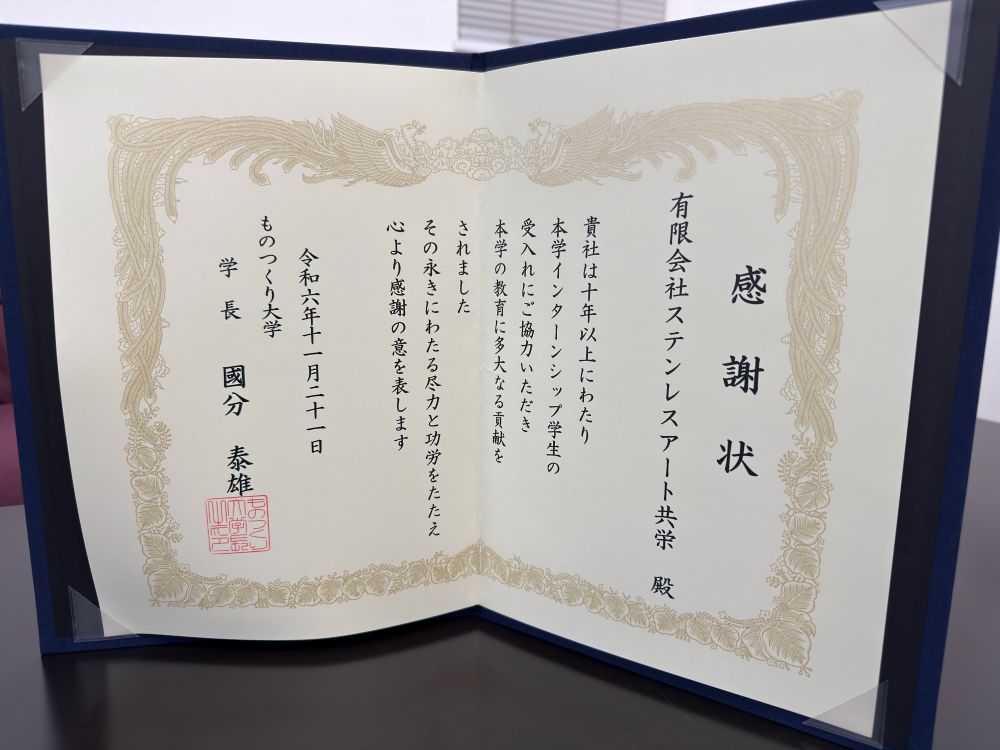 感謝状
有限会社ステンレスアート共栄 殿
貴社は十年以上にわたり
本学インターンシップ学生の
受入れにご協力いただき
本学の教育に多大なる貢献を
されました
その永きにわたる尽力と功労をたたえ
心より感謝の意を表します
令和六年十一月二十一日
ものつくり大学
学長 國分 泰雄
ものつくり
大学長
之印